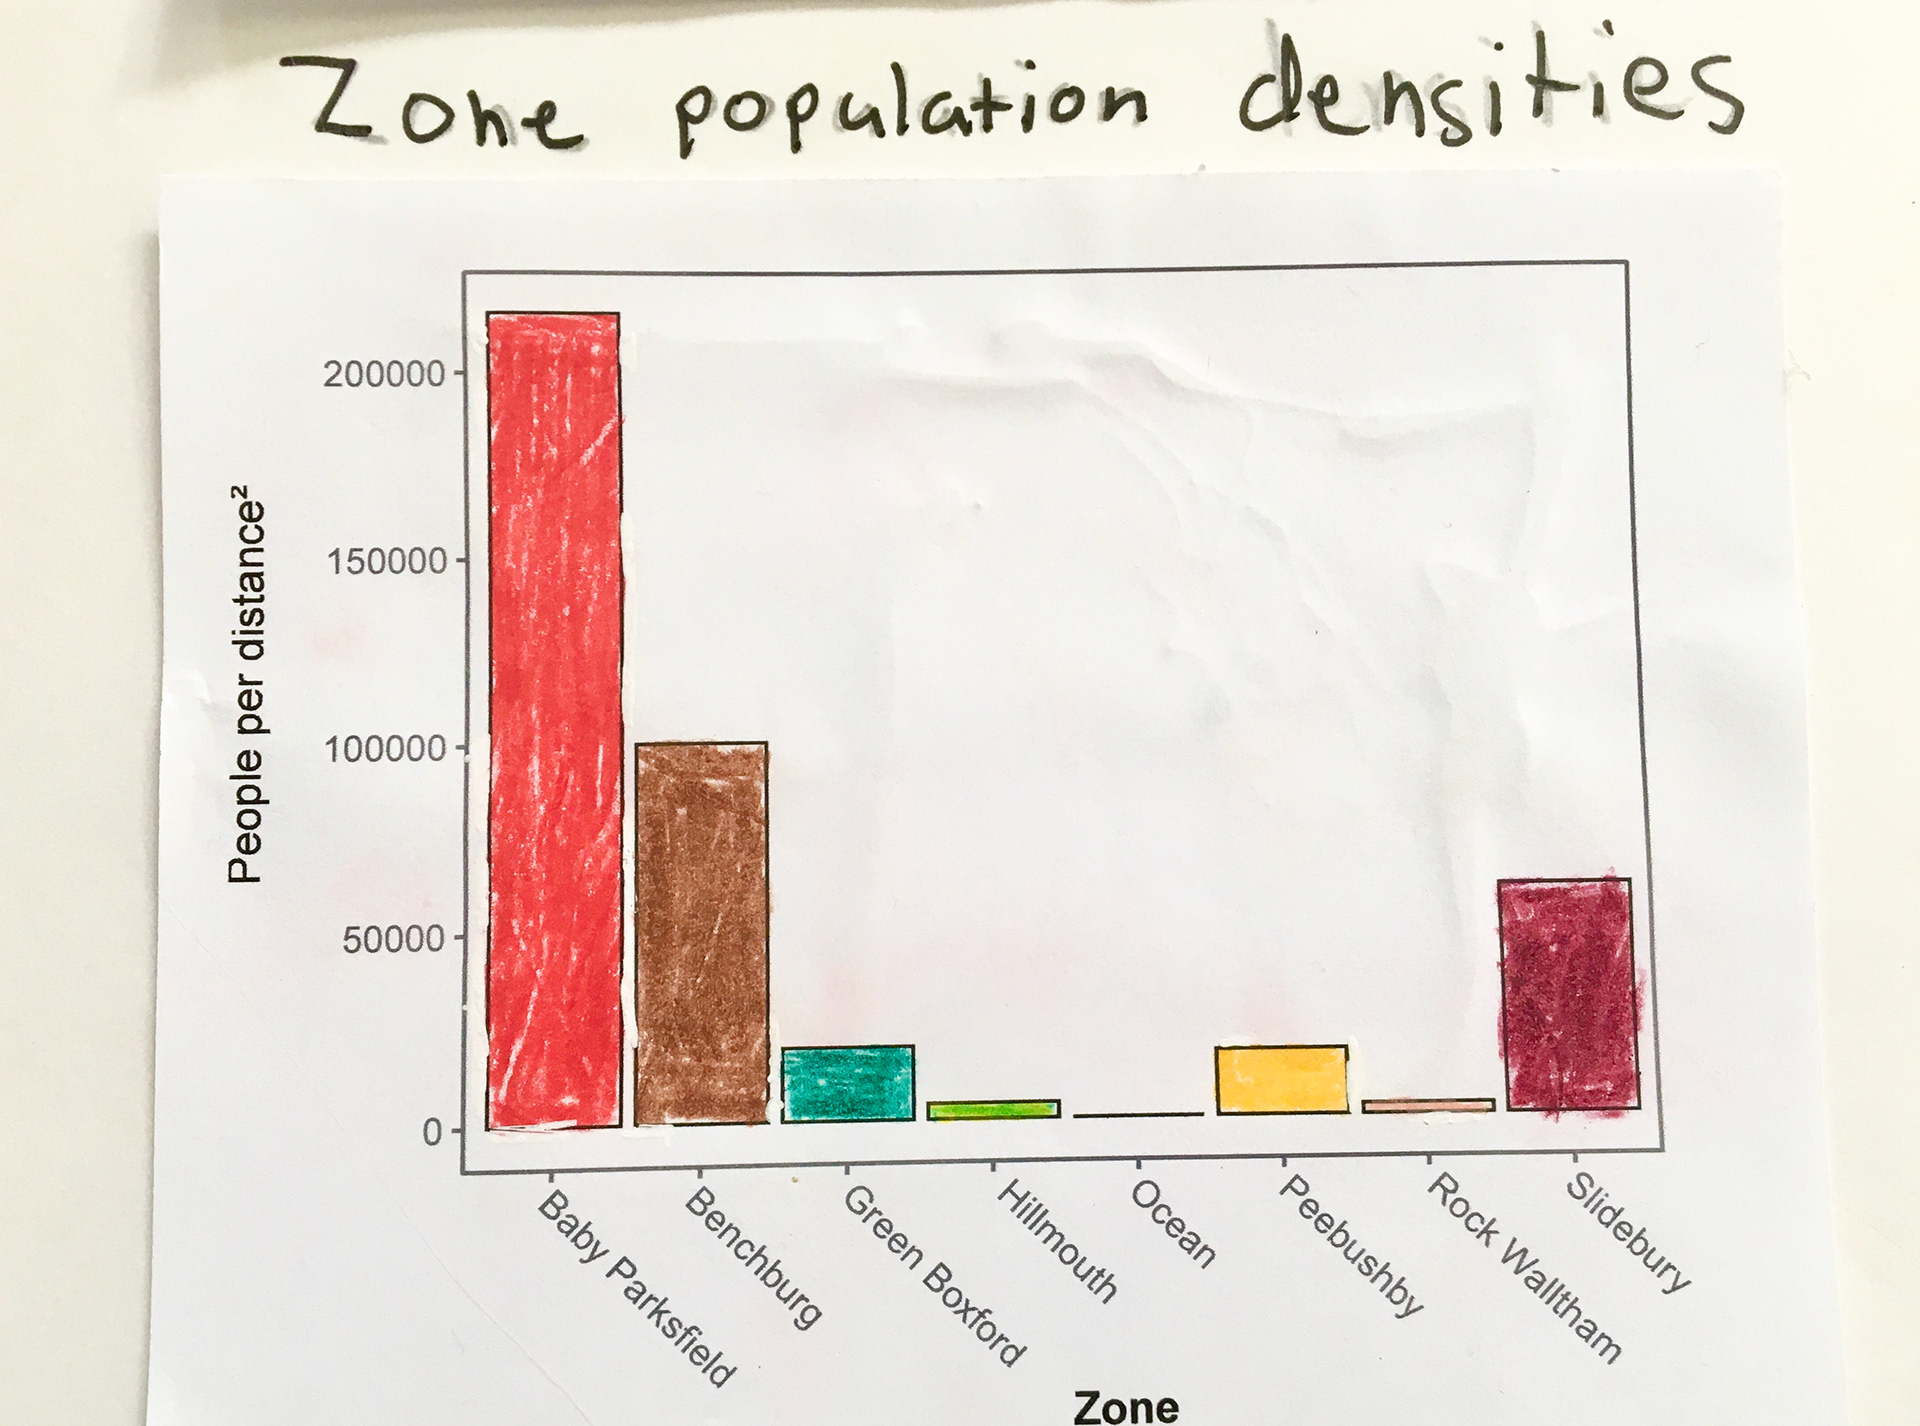 Zone population densities
People per distance²
200000
150000
100000
50000
0
Baby Parksfield
Benchburg
Green Boxford
Hillmouth
Ocean
Peebushby
Rock Walltham
Slidebury
Zone